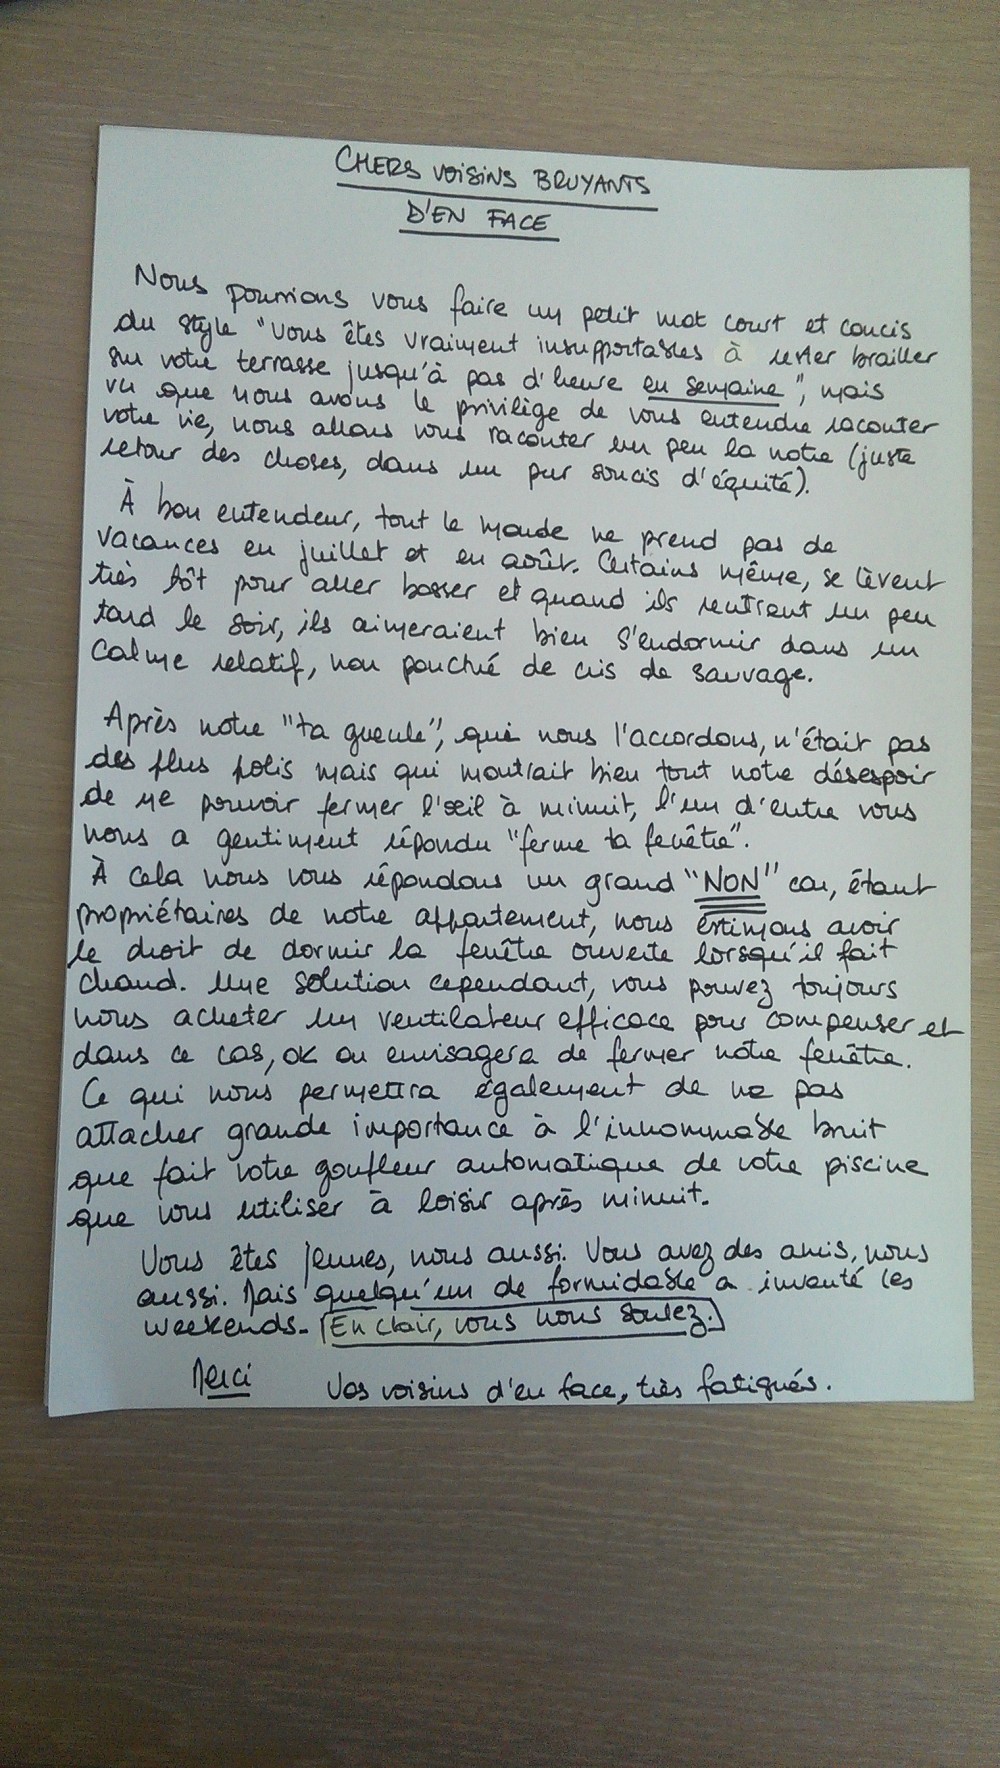 CHERS VOISINS BRUYANTS
D'EN FACE
Nous pourrions vous faire un petit mot court et concis
du style "vous êtes vraiment insupportables à rester brailler
sur votre terrasse jusqu'à pas d'heure en semaine", mais
vu que nous avons le privilège de vous entendre raconter
votre vie, nous allons vous raconter un peu la notre (juste
retour des choses, dans un pur soucis d'équité).
À bon entendeur, tout le monde ne prend pas de
vacances en juillet et en août. Certains même, se lèvent
très tôt pour aller bosser et quand ils rentrent un peu
tard le soir, ils aimeraient bien s'endormir dans un
calme relatif, non ponctué de cris de sauvage.
Après notre "ta gueule", qui nous l'accordons, n'était pas
des plus polis mais qui montrait bien tout notre désespoir
de ne pouvoir fermer l'œil à minuit, l'un d'entre vous
nous a gentiment répondu "ferme ta fenêtre".
À cela nous vous répondons un grand "NON" car, étant
propriétaires de notre appartement, nous estimons avoir
le droit de dormir la fenêtre ouverte lorsqu'il fait
chaud. Une solution cependant, vous pouvez toujours
nous acheter un ventilateur efficace pour compenser et
dans ce cas, ok on envisagera de fermer notre fenêtre.
Ce qui nous permettra également de ne pas
attacher grande importance à l'innommable bruit
que fait votre gonfleur automatique de votre piscine
que vous utiliser à loisir après minuit.
Vous êtes jeunes, nous aussi. Vous avez des amis, nous
aussi. Mais quelqu'un de formidable a inventé les
weekends. En clair, vous nous soulez.
Merci
Vos voisins d'en face, très fatigués.